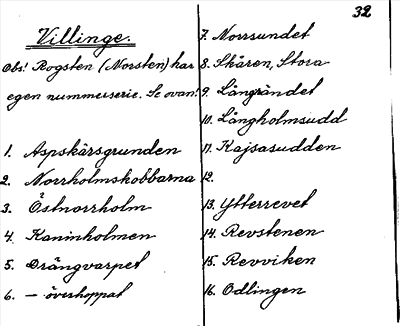 32
Villinge.
Obs! Rogsten (Norsten) har
egen nummerserie. Se ovan!
1. Aspskärsgrunden
2. Norrholmskobbarna
3. Östnorrholm
4. Kaninholmen
5. Drängvarpet
6. — överhoppat
7. Norrsundet
8. Skären, Stora
9. Långrändet
10. Långholmsudd
11. Kajsasudden
12.
13. Ytterrevet
14. Revstenen
15. Revviken
16. Odlingen